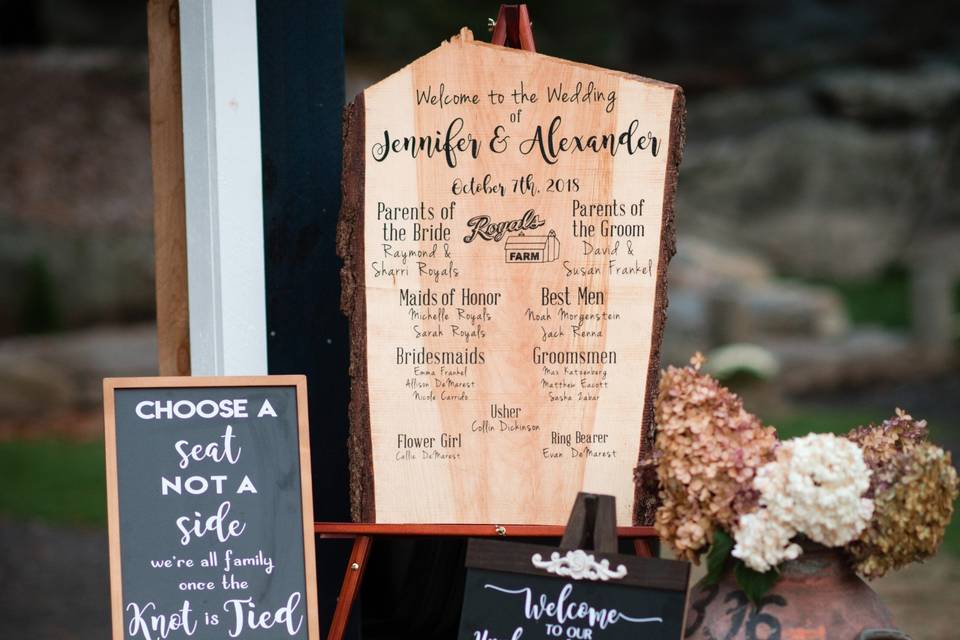 Welcome to the Wedding
of
Jennifer & Alexander
October 7th, 2018
Parents of
the Bride
Raymond &
Sharri Royals
Royals
FARM
Parents of
the Groom
David &
Susan Frankel
Maids of Honor
Michelle Royals
Sarah Royals
Best Men
Noah Morgenstein
Jack Renna
Bridesmaids
Emma Frankel
Allison DeMarest
Nicole Carrido
Groomsmen
Max Katzenberg
Matthew Eacott
Sasha Zabar
Usher
Collin Dickinson
Flower Girl
Callie DeMarest
Ring Bearer
Evan DeMarest
CHOOSE A
seat
NOT A
side
we're all family
once the
Knot is Tied
Welcome
TO OUR
316